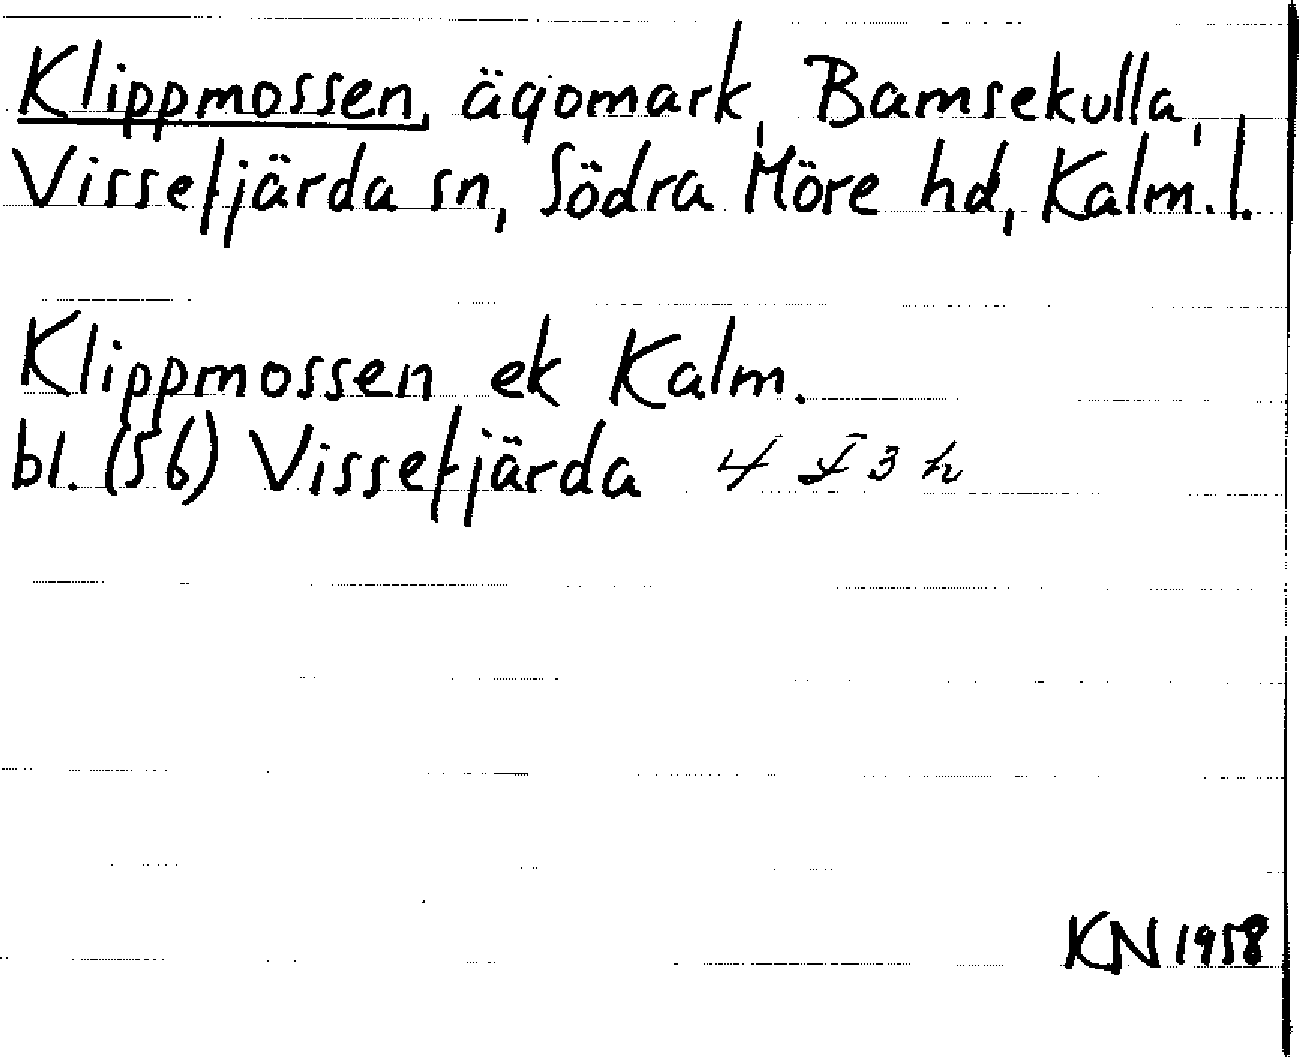 Klippmossen, ägomark, Bamsekulla,
Vissefjärda sn, Södra Möre hd, Kalm. l.
Klippmossen ek Kalm.
bl. (56) Vissefjärda 4 F 3 h
KN 1958